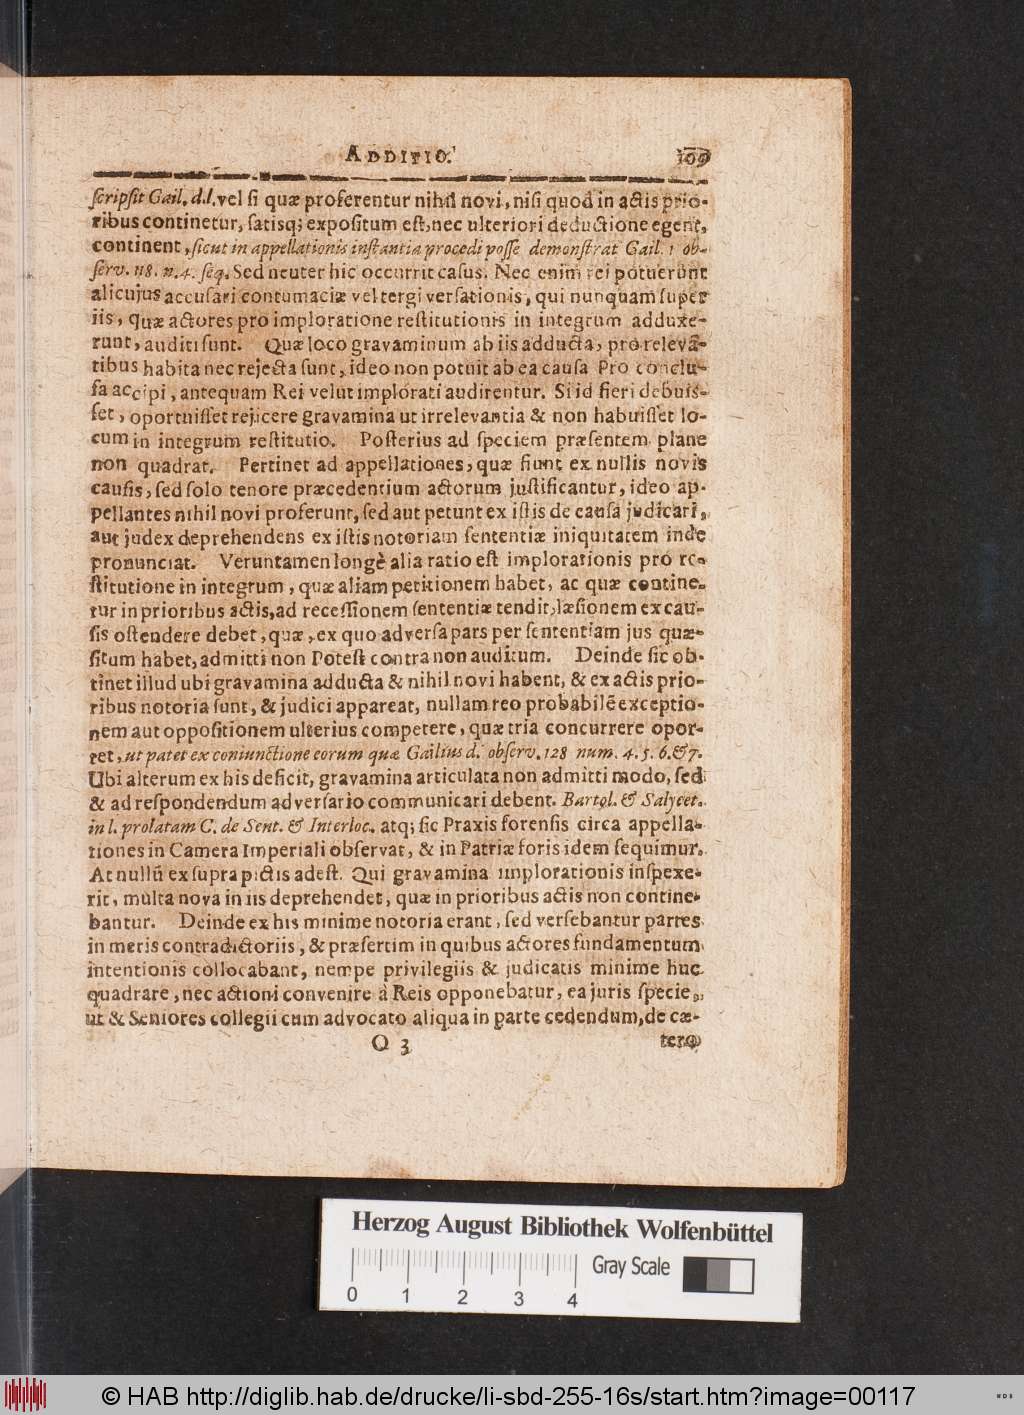 ADDITIO. 109
ſcripſit Gail. d.l. vel ſi quæ proferentur nihil novi, niſi quod in actis prio-
ribus continetur, ſatisq; expoſitum eſt, nec ulteriori deductione egent,
continent, ſicut in appellationis inſtantia procedi poſſe demonſtrat Gail. 1 ob-
ſerv. 118. n. 4. ſeq. Sed neuter hic occurrit caſus. Nec enim rei potuerunt
alicujus accuſari contumaciæ vel tergiverſationis, qui nunquam ſuper
iis, quæ actores pro imploratione reſtitutionis in integrum adduxe-
runt, auditi ſunt. Quæ loco gravaminum ab iis adducta, pro relevã-
tibus habita nec rejecta ſunt, ideo non potuit ab ea cauſa Pro conclu-
ſa accipi, antequam Rei velut implorati audirentur. Si id fieri debuiſ-
ſet, oportuiſſet rejicere gravamina ut irrelevantia & non habuiſſet lo-
cum in integrum reſtitutio. Poſterius ad ſpeciem præſentem plane
non quadrat. Pertinet ad appellationes, quæ fiunt ex nullis novis
cauſis, ſed ſolo tenore præcedentium actorum juſtificantur, ideo ap-
pellantes nihil novi proferunt, ſed aut petunt ex iſtis de cauſa judicari,
aut judex deprehendens ex iſtis notoriam ſententiæ iniquitatem inde
pronunciat. Veruntamen longè alia ratio eſt implorationis pro re-
ſtitutione in integrum, quæ aliam petitionem habet, ac quæ contine-
tur in prioribus actis, ad receſſionem ſententiæ tendit, læſionem ex cau-
ſis oſtendere debet, quæ, ex quo adverſa pars per ſententiam jus quæ-
ſitum habet, admitti non Poteſt contra non auditum. Deinde ſic ob-
tinet illud ubi gravamina adducta & nihil novi habent, & ex actis prio-
ribus notoria ſunt, & judici appareat, nullam reo probabilẽ exceptio-
nem aut oppoſitionem ulterius competere, quæ tria concurrere opor-
tet, ut patet ex coniunctione eorum quæ Gailius d. obſerv. 128 num. 4. 5. 6. & 7.
Ubi alterum ex his deficit, gravamina articulata non admitti modo, ſed
& ad reſpondendum adverſario communicari debent. Bartol. & Salycet.
in l. prolatam C. de Sent. & Interloc. atq; ſic Praxis forenſis circa appella-
tiones in Camera Imperiali obſervat, & in Patriæ foris idem ſequimur.
At nullũ ex ſupra pictis adeſt. Qui gravamina implorationis inſpexe-
rit, multa nova in iis deprehendet, quæ in prioribus actis non contine-
bantur. Deinde ex his minime notoria erant, ſed verſebantur partes
in meris contradictoriis, & præſertim in quibus actores fundamentum
intentionis collocabant, nempe privilegiis & judicatis minime huc
quadrare, nec actioni convenire à Reis opponebatur, ea juris ſpecie,
ut & Seniores collegii cum advocato aliqua in parte cedendum, de cæ-
Q 3 tero
Herzog August Bibliothek Wolfenbüttel
Gray Scale
0 1 2 3 4
© HAB http://diglib.hab.de/drucke/li-sbd-255-16s/start.htm?image=00117
WDB